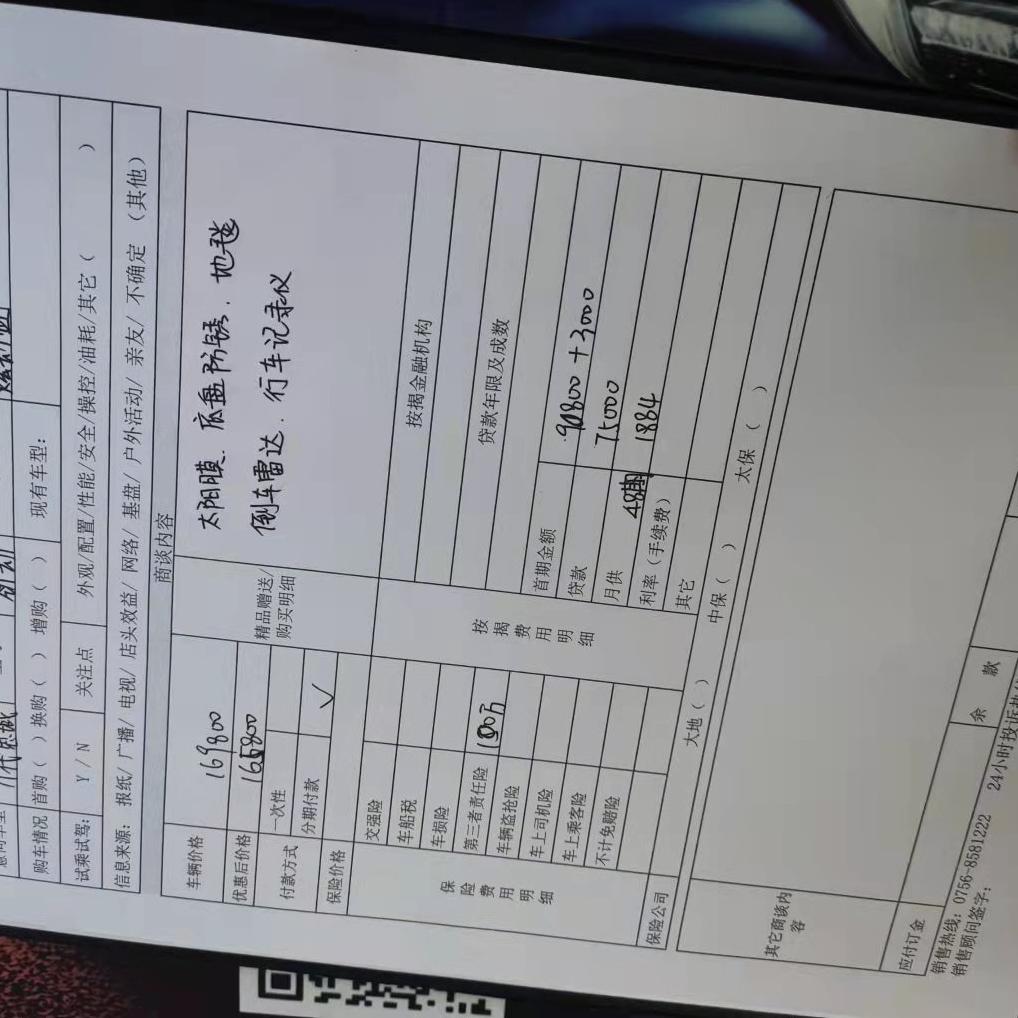 购车情况 首购( )换购( ) 增购( ) 现有车型:
试乘试驾: Y / N 关注点 外观/配置/性能/安全/操控/油耗/其它( )
信息来源: 报纸/ 广播/ 电视/ 店头效益/ 网络/ 基盘/ 户外活动/ 亲友/ 不确定 (其他)
商谈内容
车辆价格 169800
优惠后价格 165800
付款方式 一次性
分期付款 ✓
保险价格
精品赠送/
购买明细
太阳膜、底盘防锈、地毯
倒车雷达、行车记录仪
保险费用明细
交强险
车船税
车损险
第三者责任险 100万
车辆盗抢险
车上司机险
车上乘客险
不计免赔险
按揭费用明细
按揭金融机构
贷款年限及成数
首期金额 90800+3000
贷款 75000
月供 48期 1884
利率(手续费)
其它
保险公司 大地( ) 中保( ) 太保( )
其它商谈内容
应付订金 余 款
销售热线: 0756-8581222 24小时投诉热
销售顾问签字: